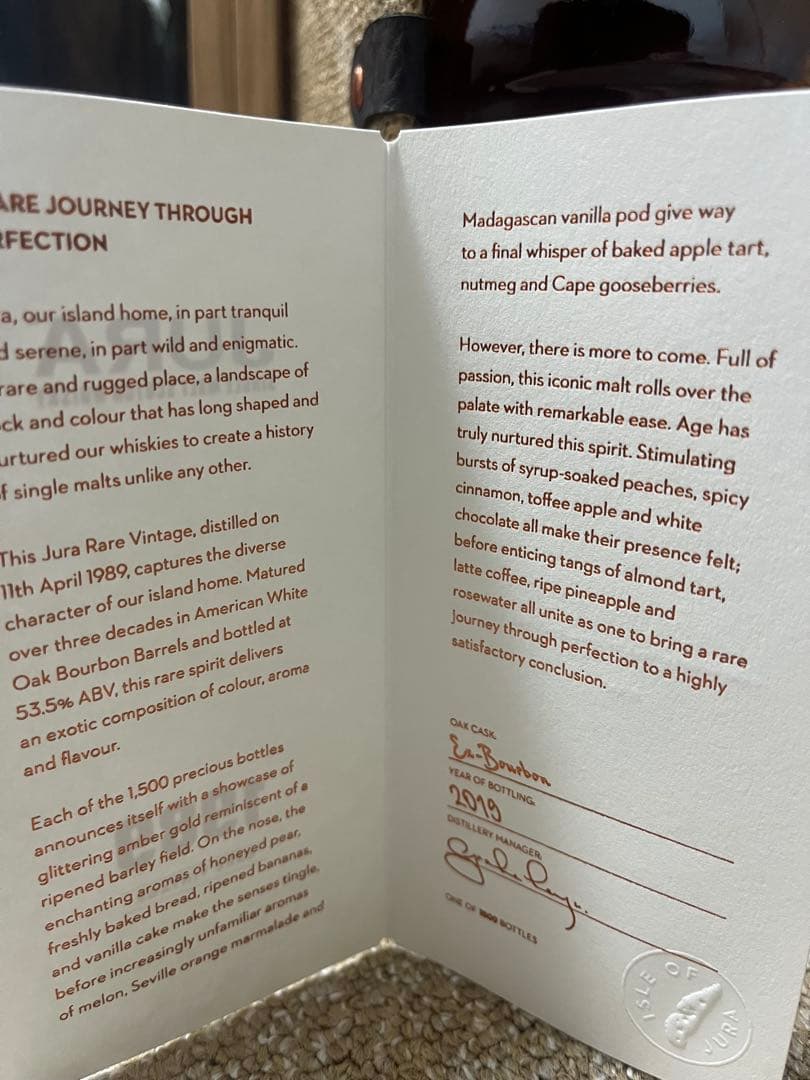 ARE JOURNEY THROUGH
RFECTION
a, our island home, in part tranquil
d serene, in part wild and enigmatic.
rare and rugged place, a landscape of
ck and colour that has long shaped and
urtured our whiskies to create a history
f single malts unlike any other.
This Jura Rare Vintage, distilled on
11th April 1989, captures the diverse
character of our island home. Matured
over three decades in American White
Oak Bourbon Barrels and bottled at
53.5% ABV, this rare spirit delivers
an exotic composition of colour, aroma
and flavour.
Each of the 1,500 precious bottles
announces itself with a showcase of
glittering amber gold reminiscent of a
ripened barley field. On the nose, the
enchanting aromas of honeyed pear,
freshly baked bread, ripened bananas,
and vanilla cake make the senses tingle,
before increasingly unfamiliar aromas
of melon, Seville orange marmalade and
Madagascan vanilla pod give way
to a final whisper of baked apple tart,
nutmeg and Cape gooseberries.
However, there is more to come. Full of
passion, this iconic malt rolls over the
palate with remarkable ease. Age has
truly nurtured this spirit. Stimulating
bursts of syrup-soaked peaches, spicy
cinnamon, toffee apple and white
chocolate all make their presence felt;
before enticing tangs of almond tart,
latte coffee, ripe pineapple and
rosewater all unite as one to bring a rare
journey through perfection to a highly
satisfactory conclusion.
OAK CASK:
Ex-Bourbon
YEAR OF BOTTLING:
2019
DISTILLERY MANAGER:
ONE OF 1500 BOTTLES
ISLE OF JURA